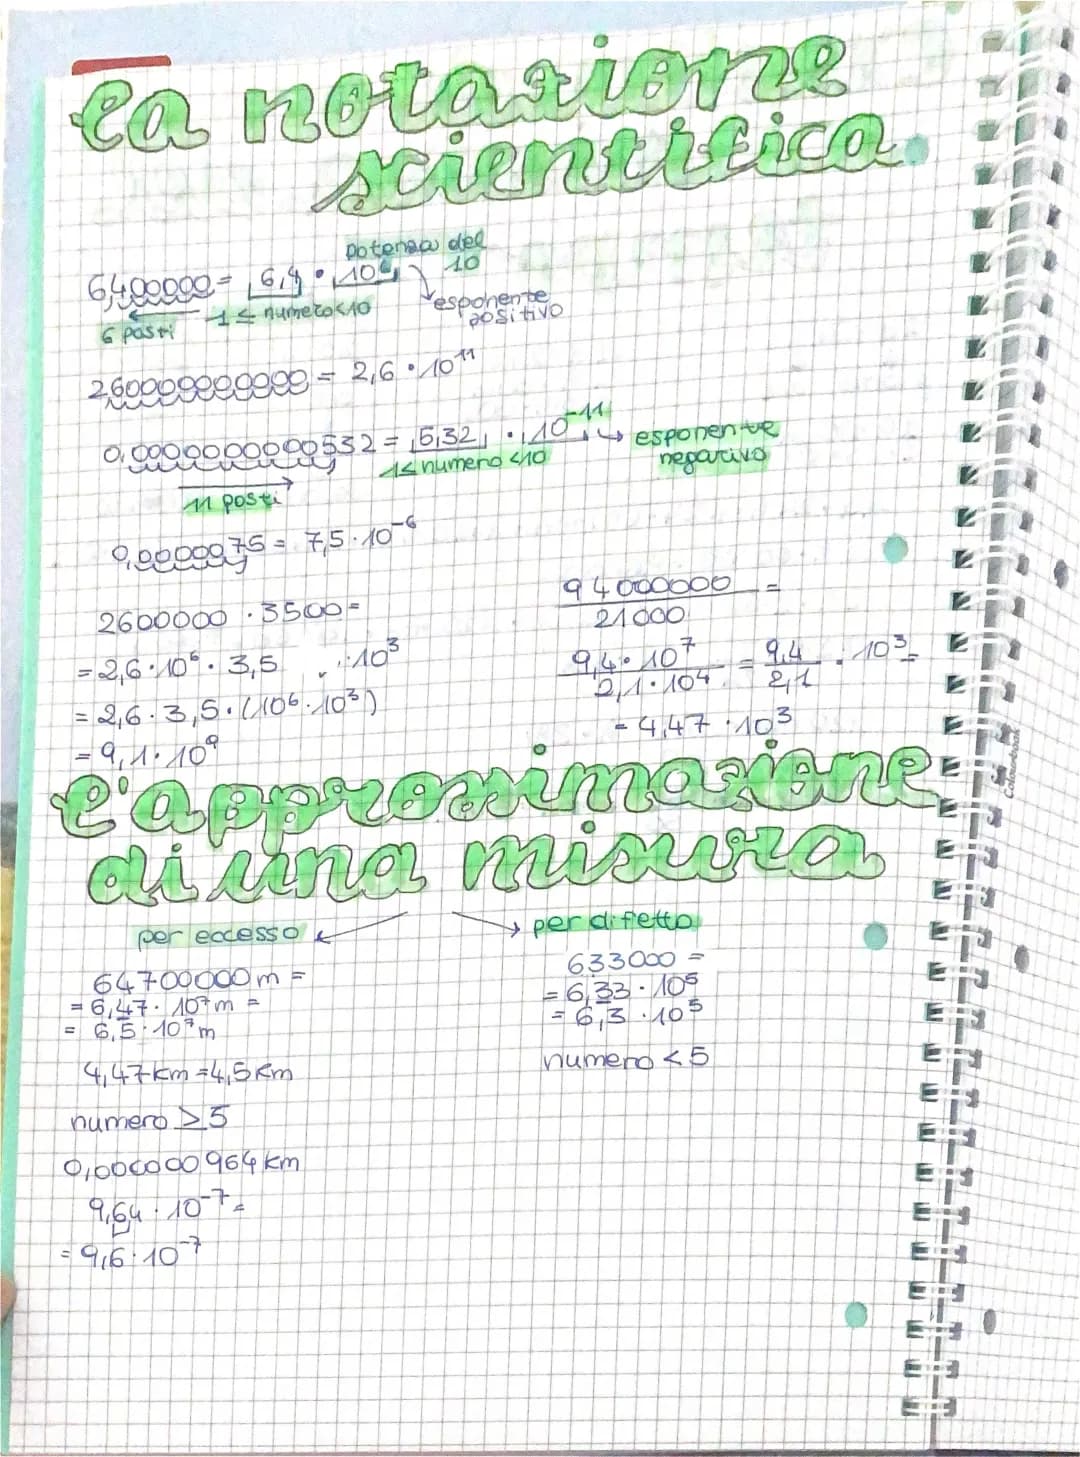 la notazione
scientifica
potenza del
10
6,400000 = 6,4 · 10⁶
esponente
positivo
1 ≤ numero < 10
6 posti
260000000000 = 2,6 · 10¹¹
0,0000000000532 = 5,32 · 10⁻¹¹
esponente
negativo
1 ≤ numero < 10
11 posti
0,0000075 = 7,5 · 10⁻⁶
2600000 · 3500 =
= 2,6 · 10⁶ · 3,5 · 10³
= 2,6 · 3,5 · (10⁶ · 10³)
= 9,1 · 10⁹
94000000 =
21000
9,4 · 10⁷ = 9,4 · 10³ =
2,1 · 10⁴ 2,1
= 4,47 · 10³
l'approssimazione
di una misura
per eccesso
64700000 m =
= 6,47 · 10⁷ m =
= 6,5 · 10⁷ m
4,47 km = 4,5 km
numero ≥ 5
0,000000964 km
9,64 · 10⁻⁷ =
= 9,6 · 10⁻⁷
per difetto
633000 =
= 6,33 · 10⁵
= 6,3 · 10⁵
numero < 5
Colourbook